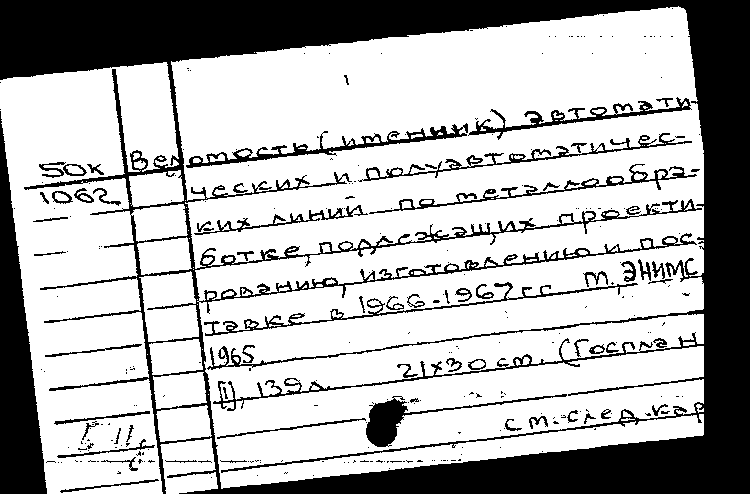 50к Ведомость (именник) автомати-
1062 ческих и полуавтоматичес-
ких линий по металлообра-
ботке, подлежащих проекти-
рованию, изготовлению и пос-
тавке в 1966-1967 гг М., ЭНИМС,
1965.
[1], 139 л. 21х30 см. (Госплан
см. след. кар